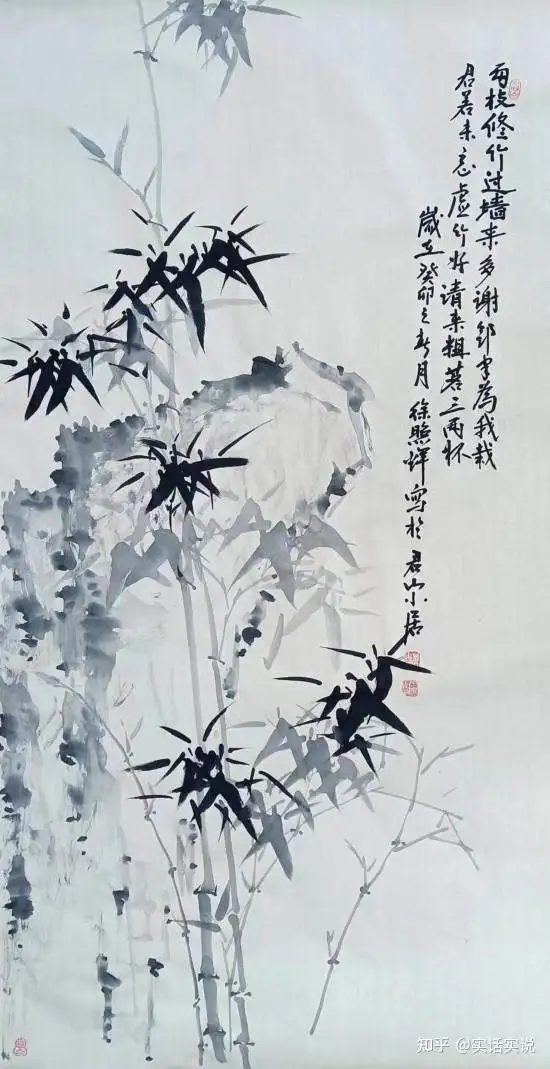 两枝修竹过墙来多谢邻家為我栽
君若未忘虚竹好请来粗茗三两杯
歲在癸卯之春月 徐照 写於君山小居
知乎 @实话实说